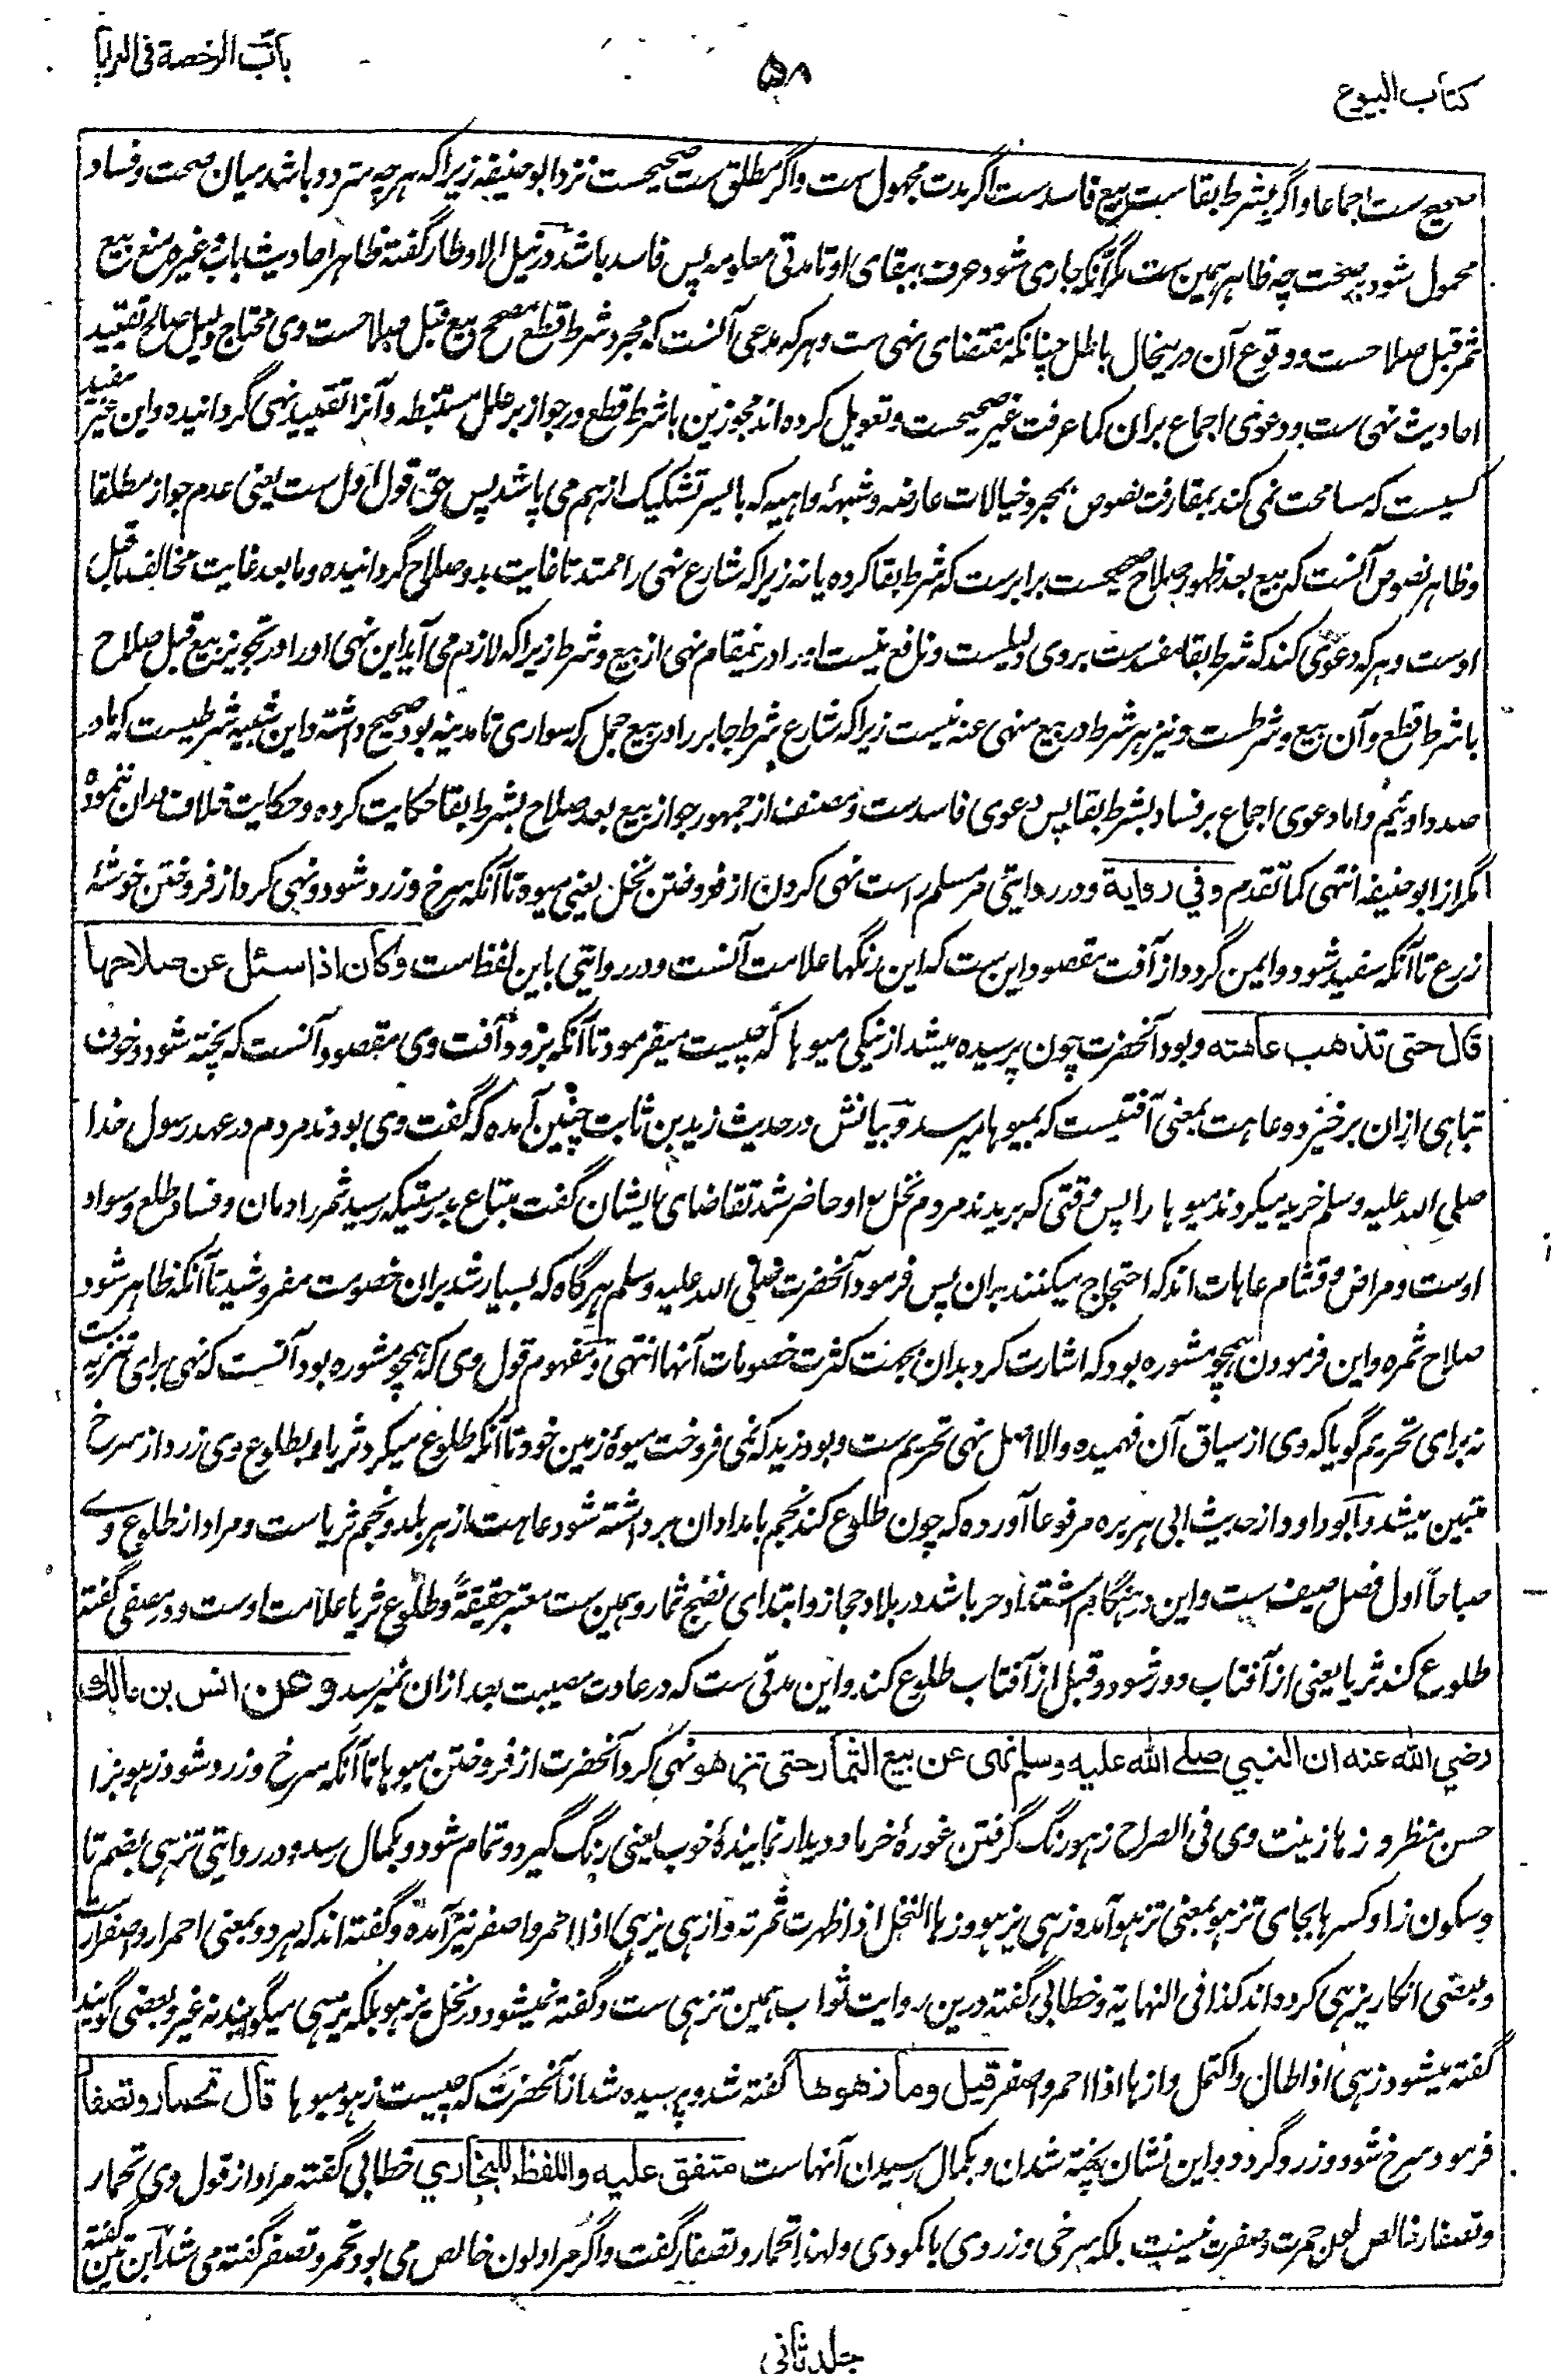 باب الرخصة فی العرایا
۵۸
کتاب البیوع
صحیح ست اجماعا و اگر بشرط بقا ست بیع فاسدست اگر مدت مجهول ست و اگر مطلق ست صحیحست نزد ابو حنیفه زیرا که هر چه متردد باشد میان صحت و فساد
محمول شود بر صحت چه ظاهر همین ست مگر آنکه جاری شود عرف ببقای او تا مدتی معلومه پس فاسد باشد در نیل الاوطار گفته ظاهر احادیث باب و غیره منع بیع
ثمر قبل صلاحست و وقوع آن درینحال باطل چنانکه مقتضای نهی ست و هر که مدعی آنست که مجرد شرط قطع مصحح بیع قبل صلاحست وی محتاج دلیل صالح تقیید
احادیث نهی ست و دعوی اجماع بران کما عرفت غیر صحیحست و تعویل کرده اند مجوزین با شرط قطع در جواز بر علل مستنبطه و آنرا تقیید نهی گردانیده و این غیر مفید
کسیست که سامحت نمی کند بمفارقت نصوص بمجرد خیالات عارضه و شبهه واهیه که بایسر تشکیک از هم می پاشد پس حق قول اول ست یعنی عدم جواز مطلقا
و ظاهر نصوص آنست که بیع بعد ظهور صلاح صحیحست برابرست که شرط بقا کرده یا نه زیرا که شارع نهی را ممتد تا غایت بدو صلاح گردانیده و ما بعد غایت مخالف ما قبل
اوست و هر که دعوی کند که شرط بقا مفسدست بروی دلیلست و نافع نیست او را درینمقام نهی از بیع و شرط زیرا که لازم می آید این نهی او را در تجویز بیع قبل صلاح
با شرط قطع و آن بیع و شرطست و نیز هر شرط در بیع منهی عنه نیست زیرا که شارع شرط جابر را در بیع جمل که سواری تا مدینه بود صحیح داشته و این شبیه شرطیست که ما در
صدد اوئیم و اما دعوی اجماع بر فساد بشرط بقا پس دعوی فاسدست و مصنف از جمهور جواز بیع بعد صلاح بشرط بقا حکایت کرده و حکایت خلاف دران ننموده
مگر از ابو حنیفه انتهی کما تقدم وفي رواية و در روایتی مر مسلم راست نهی کردن از فروختن نخل یعنی میوه تا آنکه سرخ و زرد شود و نهی کرد از فروختن خوشهٔ
زرع تا آنکه سفید شود و ایمن گردد از آفت مقصود این ست که این رنگها علامت آنست و در روایتی باین لفظ ست وكان اذا سئل عن صلاحها
قال حتى تذهب عاهته و بود آنحضرت چون پرسیده میشد از نیکی میوها که چیست میفرمود تا آنکه برود آفت وی مقصود آنست که پخته شود و خوف
تباهی ازان برخیزد و عاهت بمعنی آفتیست که بمیوها میرسد و بیانش در حدیث زید بن ثابت چنین آمده که گفت وی بودند مردم در عهد رسول خدا
صلی الله علیه وسلم خرید میکردند میوها را پس وقتی که بریدند مردم نخل و حاضر شد تقاضای ایشان گفت مبتاع بدرستیکه رسید ثمر را دمان و فساد طلع و سواد
اوست و مراض و قشام عاهات اند که احتجاج میکنند بدان پس فرمود آنحضرت صلی الله علیه وسلم هرگاه که بسیار شد بران خصومت مفروشید تا آنکه ظاهر شود
صلاح ثمره و این فرمودن همچو مشوره بود که اشارت کرد بدان بجهت کثرت خصومات آنها انتهی و مفهوم قول وی که همچو مشوره بود آنست که نهی برای تنزیه ست
نه برای تحریم گویا که وی از سیاق آن فهمیده والا اصل نهی تحریم ست و بود زید که نمی فروخت میوهٔ زمین خود تا آنکه طلوع میکرد ثریا و بطلوع وی زرد از سرخ
متبین میشد و ابو داود از حدیث ابی هریره مرفوعا آورده که چون طلوع کند نجم بامدادان برداشته شود عاهت از هر بلد و نجم ثریا ست و مراد از طلوع وی
صباحاً اول فصل صیف ست و این در هنگام اشتداد حر باشد در بلاد حجاز و ابتدای نضج ثمار و همین ست معتبر حقیقةً و طلوع ثریا علامت اوست و در مصفی گفته
طلوع کند ثریا یعنی از آفتاب دور شود و قبل از آفتاب طلوع کند و این مدتی ست که در عادت مصیبت بعد ازان نمیرسد وعن انس بن مالك
رضي الله عنه ان النبي صلے الله عليه وسلم نهى عن بيع الثمار حتى تزهو نهی کرد آنحضرت از فروختن میوها تا آنکه سرخ و زرد شود زهو بزا
حسن منظر و زها زینت وی فی الصراح زهو رنگ گرفتن غورهٔ خرما و دیدار نمایندهٔ خوب یعنی رنگ گیرد و تمام شود و بکمال رسد و در روایتی تزهی بضم تا
و سکون زا و کسر ها بجای تزهو بمعنی تزهو آمده زهی یزهو و زها النخل اذا ظهرت ثمرته و ازهی یزهی اذا احمر و اصفر نیز آمده و گفته اند که هر دو بمعنی احمرار و اصفرارست
و بعضی انکار یزهی کرده اند کذا فی النهایة و خطابی گفته درین روایت ثواب همین تزهی ست و گفته نمیشود در نخل یزهو بلکه یزهی میگویند نه غیر و بعضی گویند
گفته میشود زهی اذا طال و اکتمل و ازها اذا احمر و اصفر قيل وما زهوها گفته شد و پرسیده شد از آنحضرت که چیست زهو میوها قال تحمار وتصفار
فرمود سرخ شود و زرد گردد و این نشان پخته شدن و بکمال رسیدن آنهاست متفق عليه واللفظ للبخاري خطابی گفته مراد از قول وی تحمار
و تصفار خالص لون حمرت و صفرت نیست بلکه سرخی و زردی با کمودی ولهذا تحمار و تصفار گفت و اگر مراد لون خالص می بود تحمر و تصفر گفته می شد ابن تین گفته
جلد ثانی